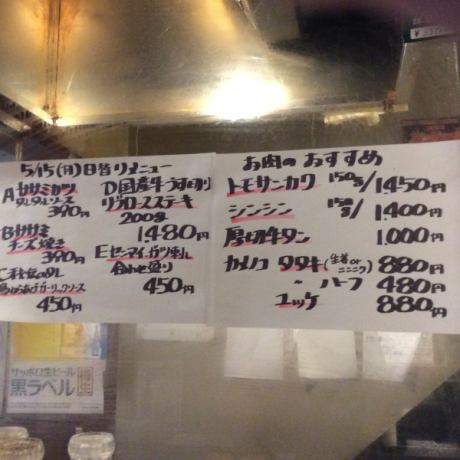 5/15(月)日替りメニュー
Aササミカツ
タルタルソース
390円
Bササミ
チーズ焼き
390円
ガーリックソース
450円
D国産牛うす切り
リブロースステキ
200g
1480円
Eセンマイ、ガツ刺し
合わせ盛り
450円
お肉のおすすめ
トモサンカク 150g/1450円
シンシン 150g/1400円
厚切牛タン 1,000円
カメノコ タタキ(生姜orニンニク) 880円
〃 ハーフ 480円
ユッケ 880円
サッポロ生ビール
黒ラベル
樽生